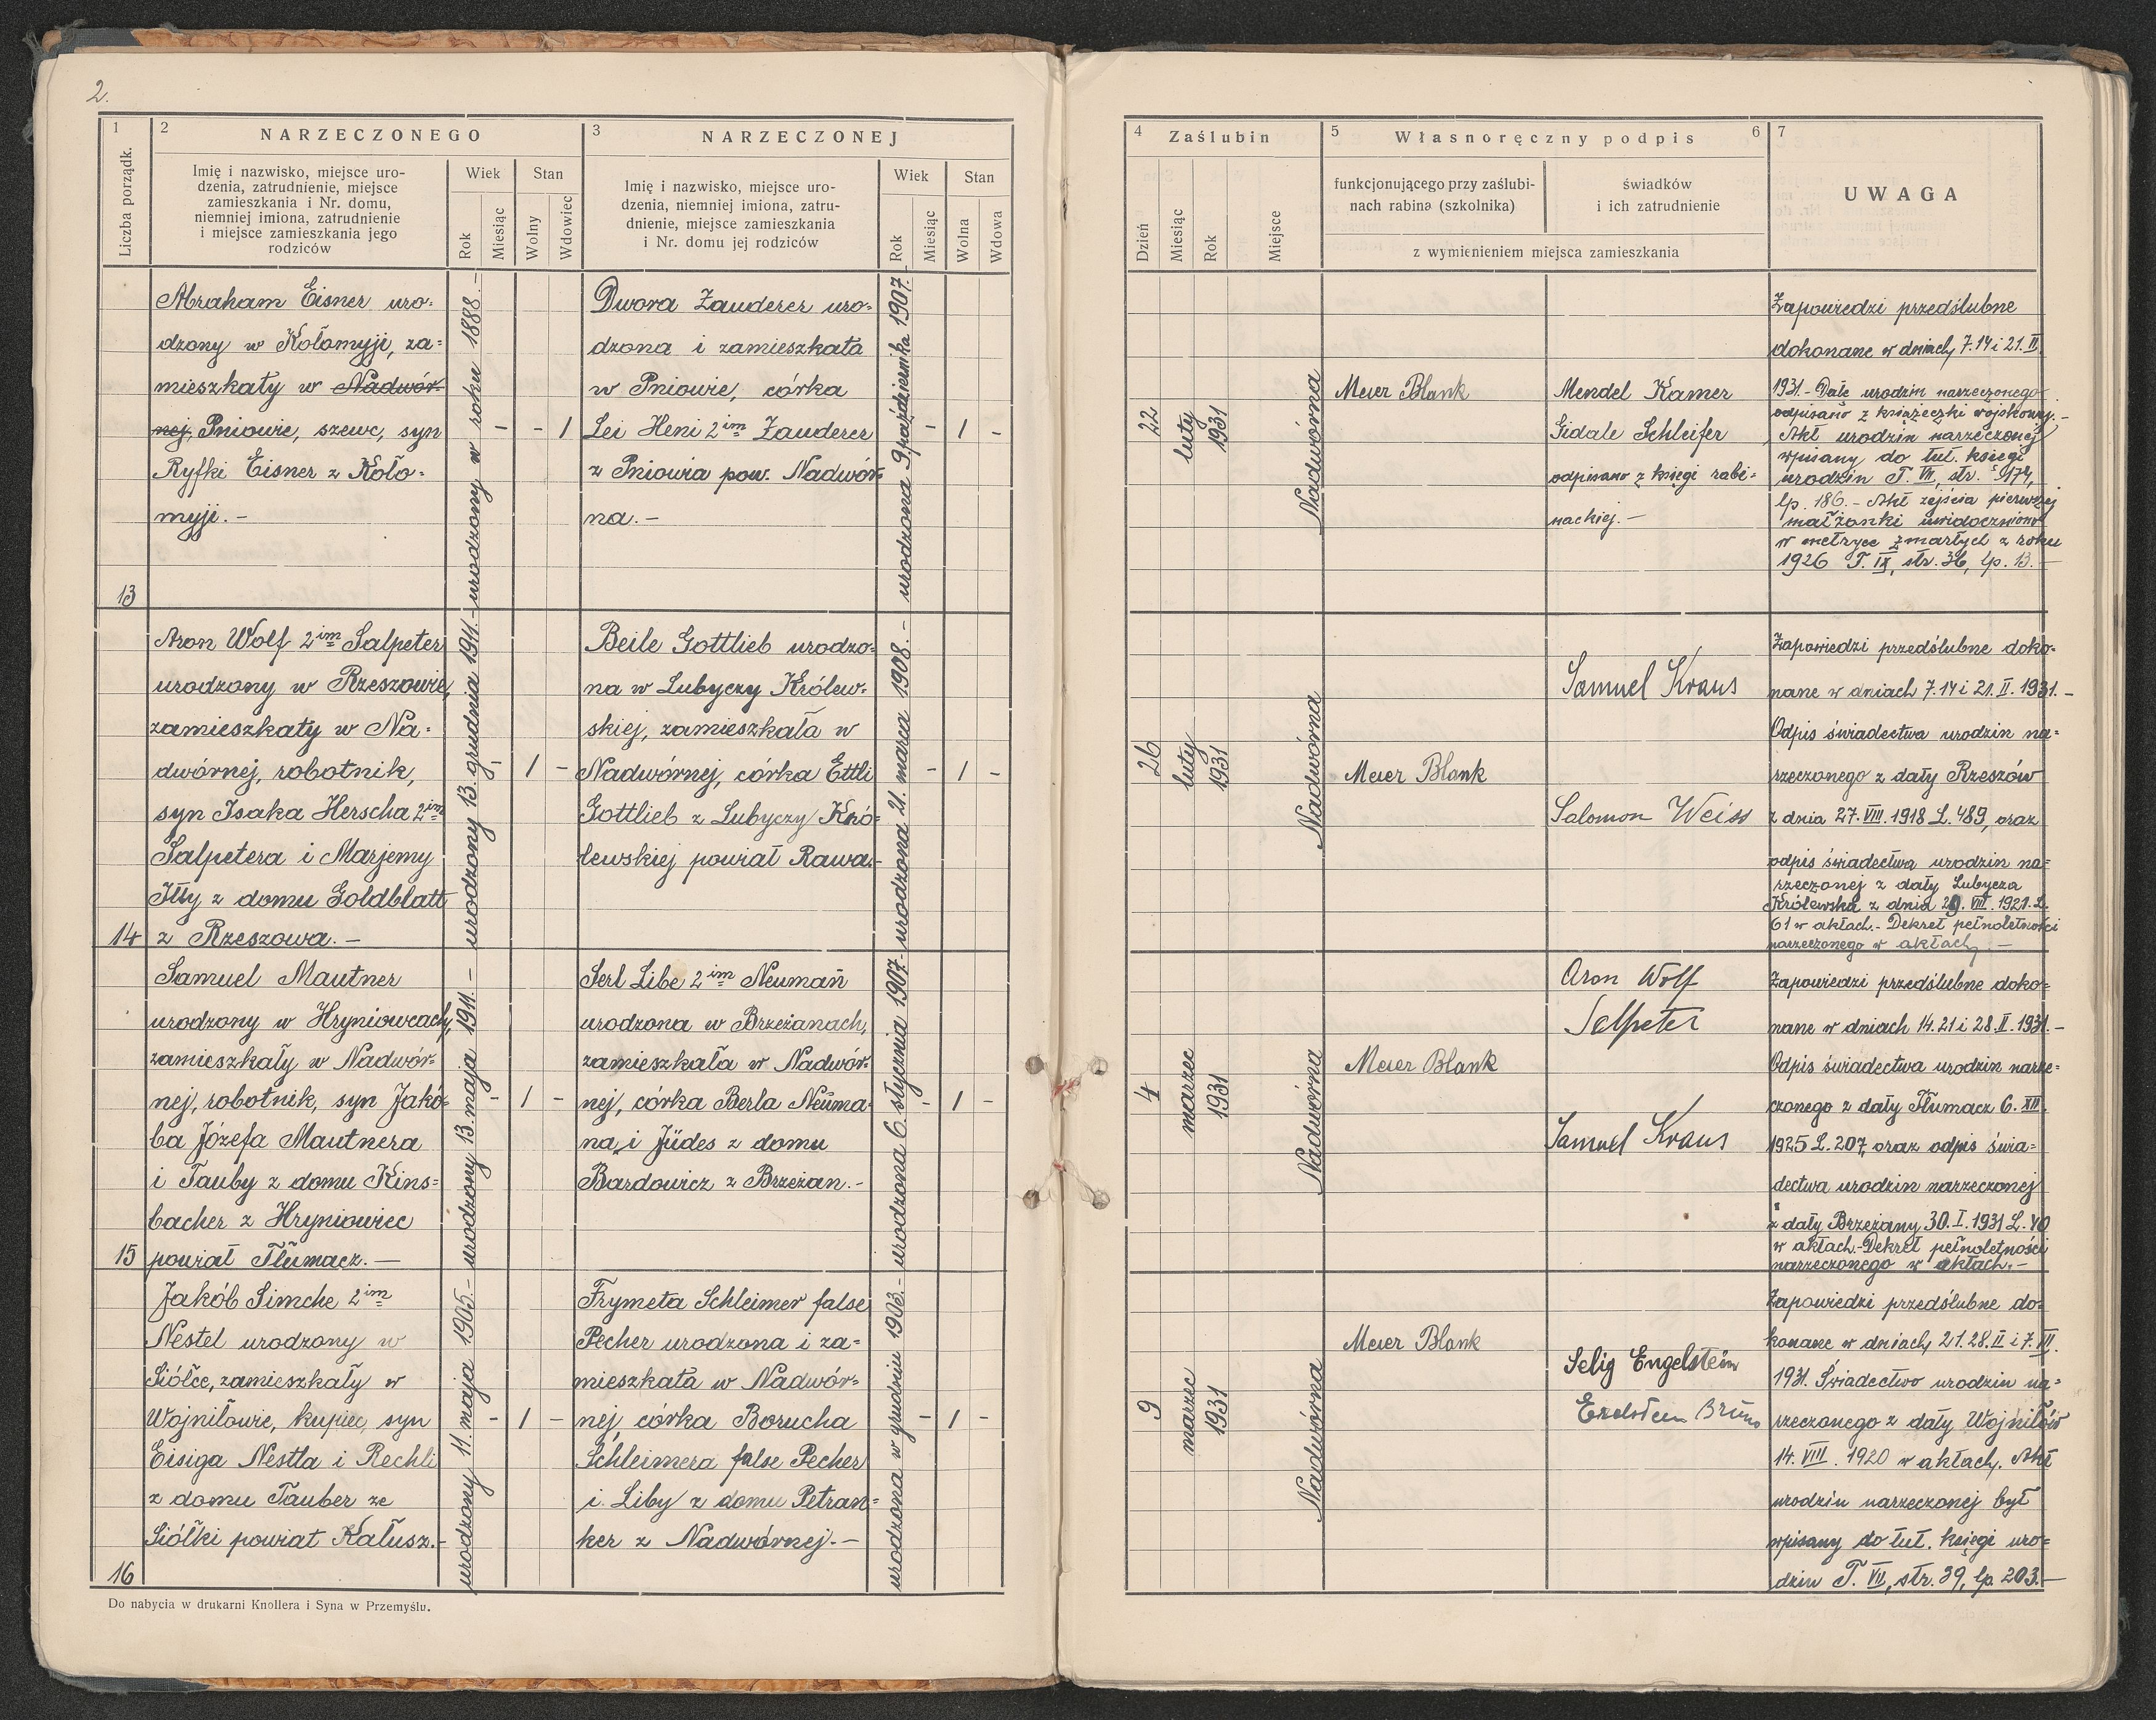 2.
1
Liczba porządk.
2
NARZECZONEGO
Imię i nazwisko, miejsce uro-
dzenia, zatrudnienie, miejsce
zamieszkania i Nr. domu,
niemniej imiona, zatrudnienie
i miejsce zamieszkania jego
rodziców
Wiek
Rok
Miesiąc
Stan
Wolny
Wdowiec
3
NARZECZONEJ
Imię i nazwisko, miejsce uro-
dzenia, niemniej imiona, zatru-
dnienie, miejsce zamieszkania
i Nr. domu jej rodziców
Wiek
Rok
Miesiąc
Stan
Wolna
Wdowa
4
Zaślubin
Dzień
Miesiąc
Rok
Miejsce
5
Własnoręczny podpis
6
funkcjonującego przy zaślubi-
nach rabina (szkolnika)
świadków
i ich zatrudnienie
z wymienieniem miejsca zamieszkania
7
UWAGA
13
Abraham Eisner uro=
dzony w Kołomyji, za=
mieszkały w Nadwór=
nej, Pniowie, szewc, syn
Ryfki Eisner z Koło=
myji.-
urodzony w roku 1888.-
- - 1
Dwora Zauderer uro=
dzona i zamieszkała
w Pniowie, córka
Lei Heni 2im Zauderer
z Pniowia pow. Nadwór=
na.-
urodzona 9 października 1907.-
- 1 -
22
luty
1931
Nadwórna
Meier Blank
Mendel Kamer
Gidale Schleifer
odpisano z księgi rabi=
nackiej.-
Zapowiedzi przedślubne
dokonane w dniach 7. 14 i 21. II.
1931.- Datę urodzin narzeczonego
odpisano z książeczki wojskowej.-
Akt urodzin narzeczonej
wpisany do tut. księgi
urodzin T. VII, str. 174,
lp. 186.- Akt zejścia pierwszej
małżonki uwidoczniono
w metryce zmarłych z roku
1926 T. IX, str. 36, lp. 13.-
14
Aron Wolf 2im Salpeter
urodzony w Rzeszowie,
zamieszkały w Na=
dwórnej, robotnik,
syn Isaka Herscha 2im
Salpetera i Marjemy
Itty z domu Goldblatt
z Rzeszowa.-
urodzony 13. grudnia 1911.-
- 1 -
Beile Gottlieb urodzo=
na w Lubyczy Królew=
skiej, zamieszkała w
Nadwórnej, córka Ettli
Gottlieb z Lubyczy Kró=
lewskiej powiat Rawa.-
urodzona 21. marca 1908.-
- 1 -
26
luty
1931
Nadwórna
Meier Blank
Samuel Kraus
Salomon Weiss
Zapowiedzi przedślubne doko=
nane w dniach 7. 14 i 21. II. 1931.-
Odpis świadectwa urodzin na=
rzeczonego z daty Rzeszów
z dnia 27. VIII. 1918 L. 489, oraz
odpis świadectwa urodzin na=
rzeczonej z daty Lubycza
Królewska z dnia VIII. 1921 L.
61 w aktach.- Dekret pełnoletności
narzeczonego w aktach.-
15
Samuel Mautner
urodzony w Hryniowcach,
zamieszkały w Nadwór=
nej, robotnik, syn Jakó=
ba Józefa Mautnera
i Tauby z domu Kins=
bacher z Hryniowiec
powiat Tłumacz.-
urodzony 13. maja 1911.-
- 1 -
Serl Libe 2im Neuman
urodzona w Brzeżanach,
zamieszkała w Nadwór=
nej, córka Berla Neuma=
na i Jüdes z domu
Bardowicz z Brzeżan.-
urodzona 6. stycznia 1907.-
- 1 -
4
marzec
1931
Nadwórna
Meier Blank
Aron Wolf
Salpeter
Samuel Kraus
Zapowiedzi przedślubne doko=
nane w dniach 14. 21 i 28. II. 1931.-
Odpis świadectwa urodzin narze=
czonego z daty Tłumacz 6. XII.
1925 L. 207, oraz odpis świa=
dectwa urodzin narzeczonej
z daty Brzeżany 30. I. 1931 L. 40
w aktach.- Dekret pełnoletności
narzeczonego w aktach.-
16
Jakób Simche 2im
Nestel urodzony w
Siółce, zamieszkały w
Wojniłowie, kupiec, syn
Eisiga Nestla i Rechli
z domu Tauber ze
Siółki powiat Kałusz.-
urodzony 11. maja 1905.-
- 1 -
Frymeta Schleimer false
Pecher urodzona i za=
mieszkała w Nadwór=
nej, córka Borucha
Schleimera false Pecher
i Liby z domu Petran=
ker z Nadwórnej.-
urodzona w grudniu 1903.-
- 1 -
9
marzec
1931
Nadwórna
Meier Blank
Selig Engelstein
Zapowiedzi przedślubne do=
konane w dniach 21. 28. II i 7. III.
1931. Świadectwo urodzin na=
rzeczonego z daty Wojniłów
14. VIII. 1920 w aktach. Akt
urodzin narzeczonej był
wpisany do tut. księgi uro=
dzin T. VII, str. 39, lp. 203.-
Do nabycia w drukarni Knollera i Syna w Przemyślu.